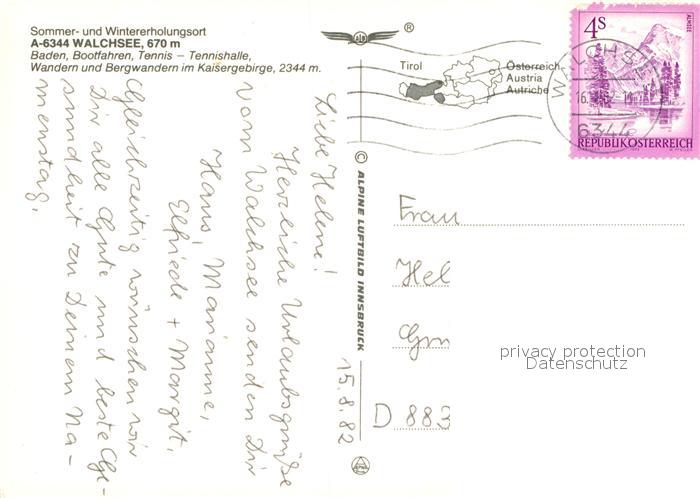 Sommer- und Wintererholungsort
A-6344 WALCHSEE, 670 m
Baden, Bootfahren, Tennis – Tennishalle,
Wandern und Bergwandern im Kaisergebirge, 2344 m.
®
Tirol
Österreich
Austria
Autriche
4S
ALMSEE
REPUBLIK ÖSTERREICH
WALCHS
6344
© ALPINE LUFTBILD INNSBRUCK
15.8.82
Liebe Helene!
Herzliche Urlaubsgrüße
vom Walchsee senden Dir
Hans, Marianne,
Elfriede + Margit.
Gleichzeitig wünschen wir
Dir alle Gute und beste Ge-
sundheit zu Deinem Na-
menstag.
Frau
Hel
D 883
privacy protection
Datenschutz